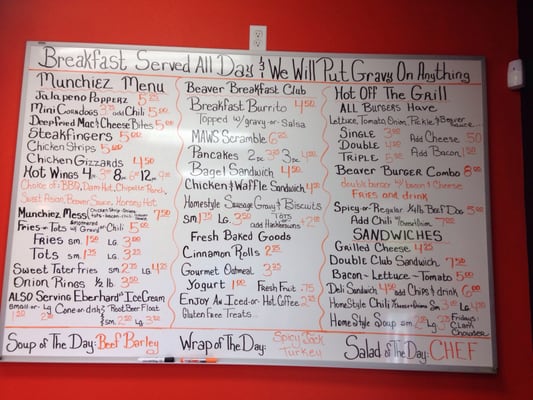 Breakfast Served All Day & We Will Put Gravy On Anything
Munchiez Menu
Jalapeno Popperz 5
Mini Corndogs 3 add Chili 5.00
Deep Fried Mac & Cheese Bites 5.00
Steakfingers 5.00
Chicken Strips 5.00
Chicken Gizzards 4.50
Hot Wings 4pc 8pc 12pc
Choice of: BBQ, Dam Hot, Chipotle Ranch,
Sweet Asian, Beaver Sauce, Horsey Hot
Munchiez Mess 7.50
Fries or Tots w/ Gravy or Chili 5.00
Fries sm 1.50 Lg 3.00
Tots sm 1.25 Lg
Sweet Tater Fries sm 2.75 Lg 4.25
Onion Rings 1/2 lb 3.50
Also Serving Eberhard's Ice Cream
small or Lg Cone or dish Root Beer Float
Soup of The Day: Beef Barley
Beaver Breakfast Club
Breakfast Burrito 4.50
Topped w/ gravy or Salsa
Maws Scramble 6.25
Pancakes 2pc 3pc
Bagel Sandwich 4.50
Chicken & Waffle Sandwich 4.50
Homestyle Sausage Gravy & Biscuits
sm Lg 3.50 Tots add Hashbrowns
Fresh Baked Goods
Cinnamon Rolls 2.25
Gourmet Oatmeal 3.50
Yogurt 1.00 Fresh Fruit .75
Enjoy An Iced or Hot Coffee
Gluten Free Treats...
Wrap of The Day: Spicy Jack
Turkey
Hot Off The Grill
All Burgers Have
Lettuce, Tomato Onion, Pickle & Beaver Sauce
Single 3.00 Add Cheese .50
Double 4.00
Triple 5.00 Add Bacon 1.50
Beaver Burger Combo 8.00
double burger w/ bacon & Cheese
Fries and drink
Spicy or Regular Kill's Beef Dog 5.00
Add Chili 7.00
Sandwiches
Grilled Cheese 4.25
Double Club Sandwich 7.50
Bacon-Lettuce-Tomato 5.00
Deli Sandwich 4.50 add Chips & drink 6.00
HomeStyle Chili Sm Lg
Home Style Soup sm Lg Fridays: Clam
Chowder
Salad of The Day: CHEF